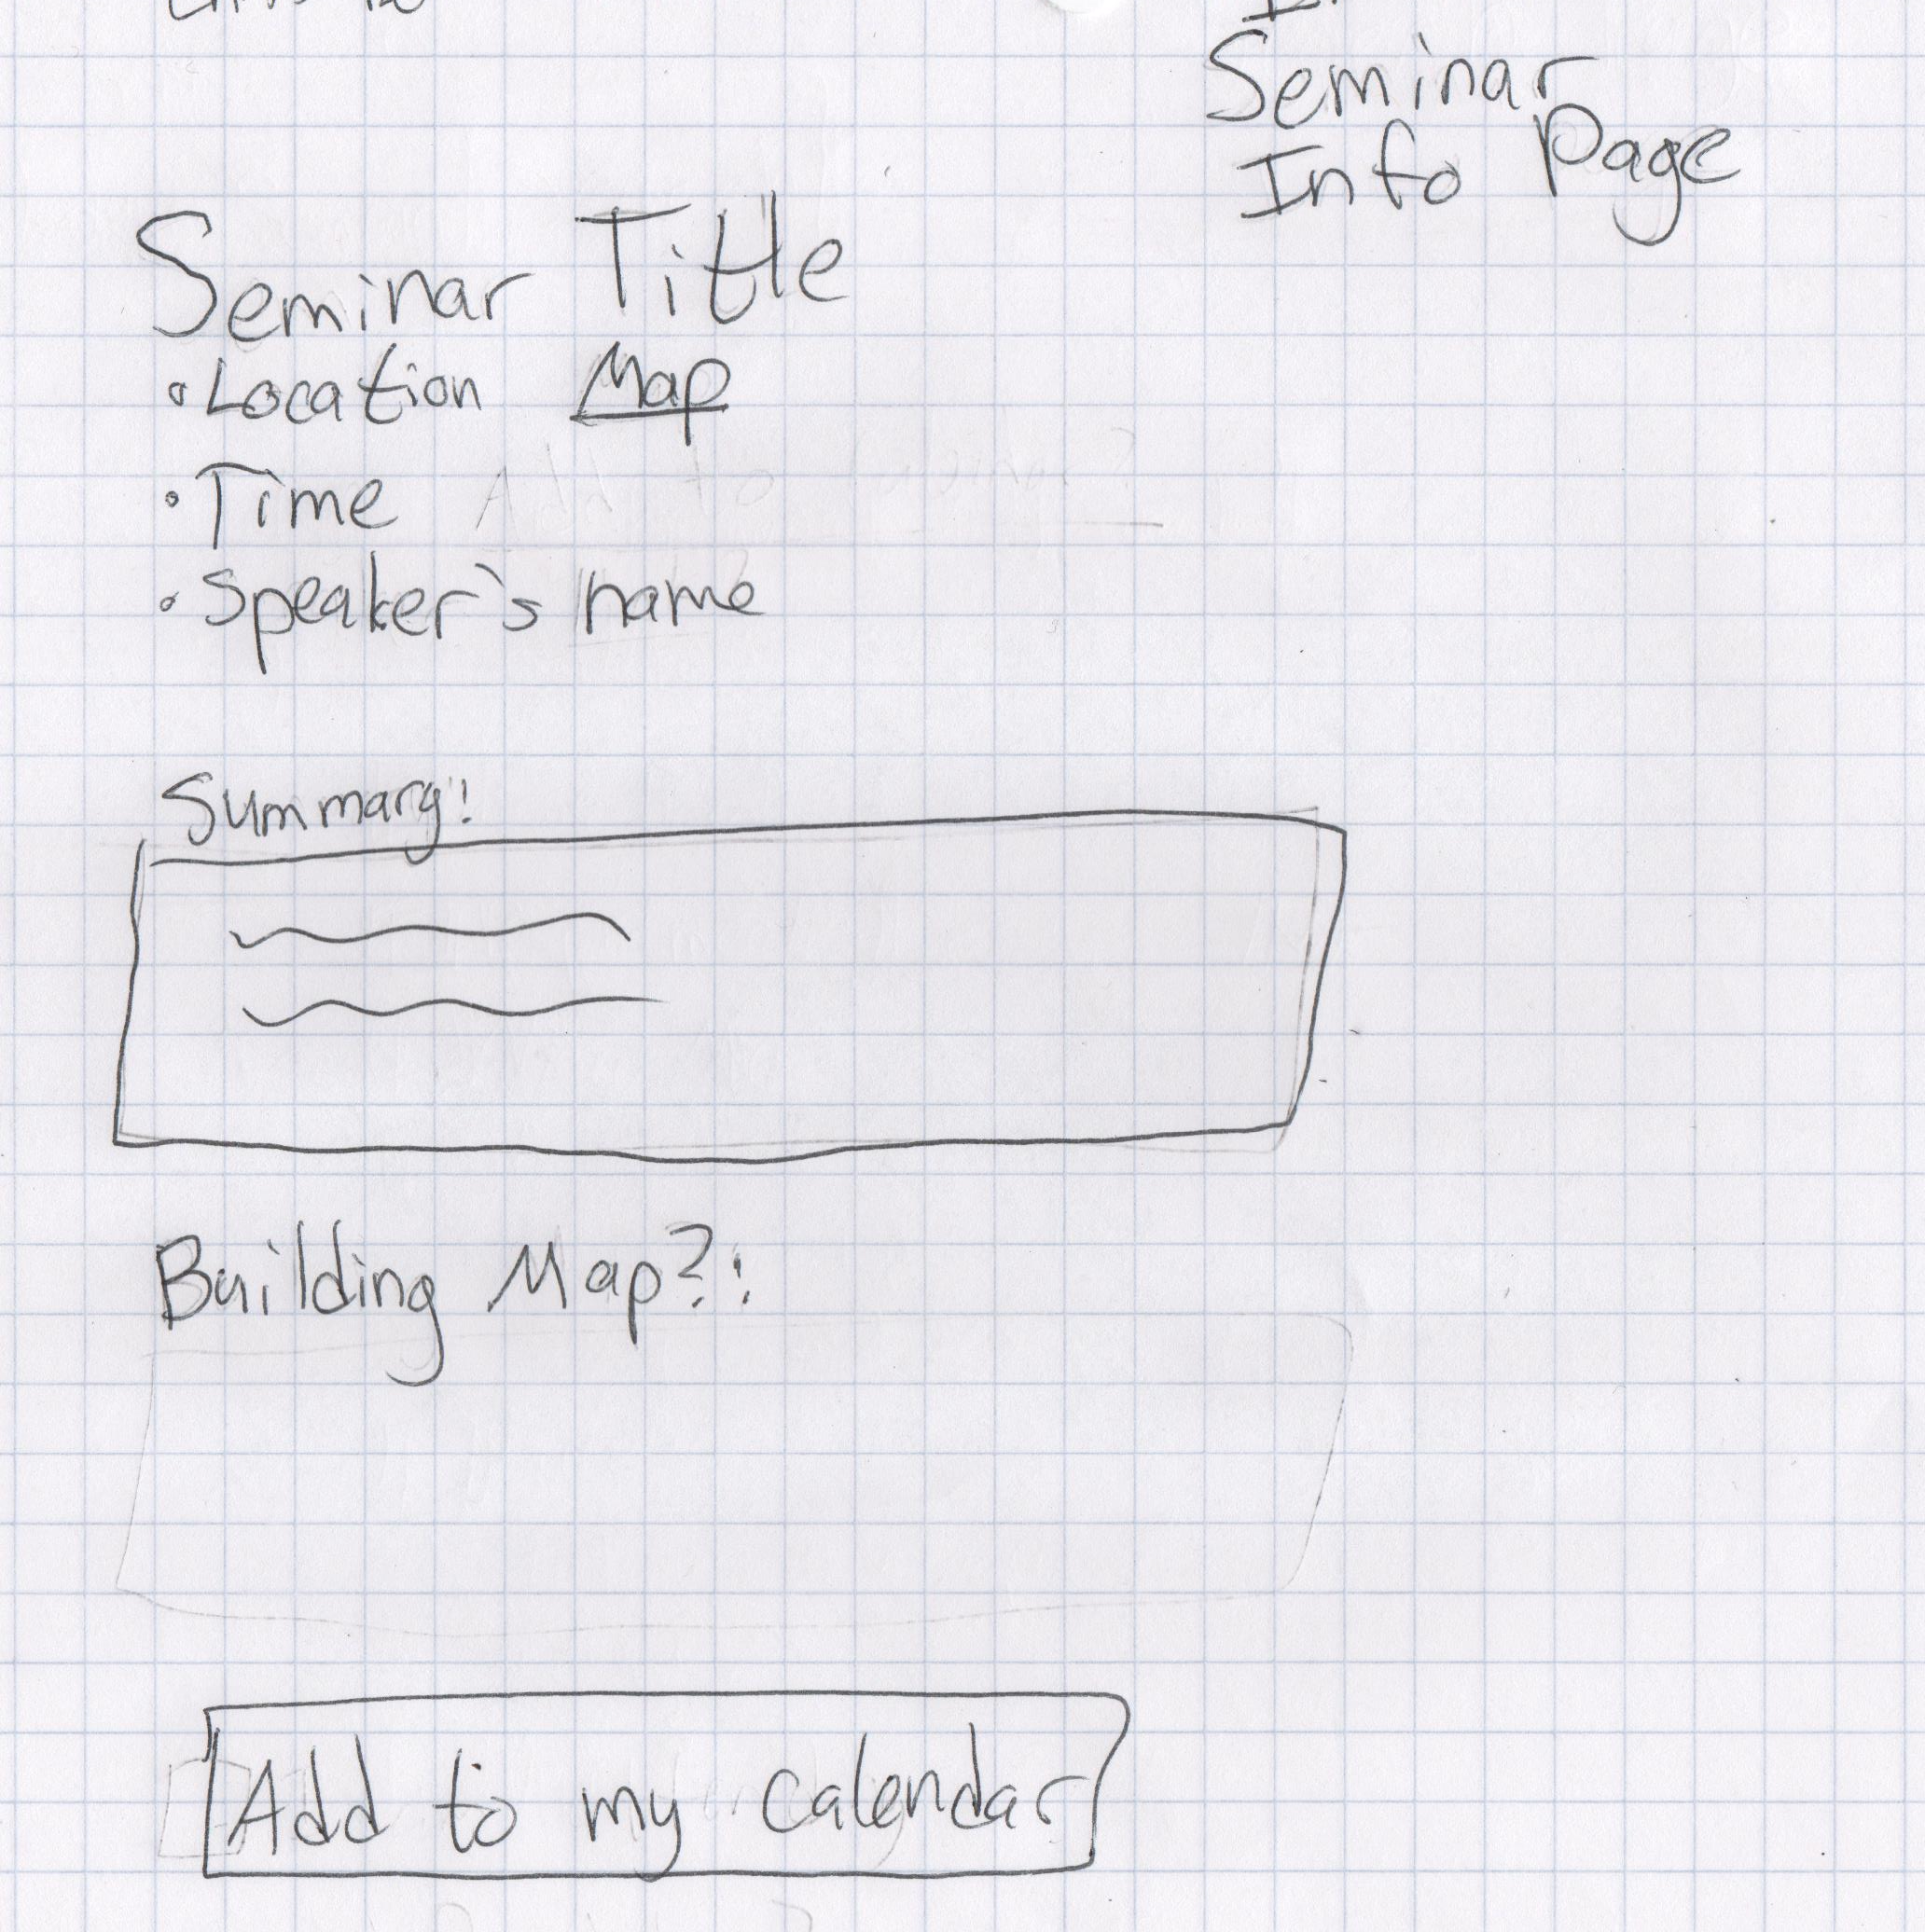 Seminar
Info Page
Seminar Title
• Location Map
• Time
• Speaker's name
Summary:
Building Map?:
Add to my calendar